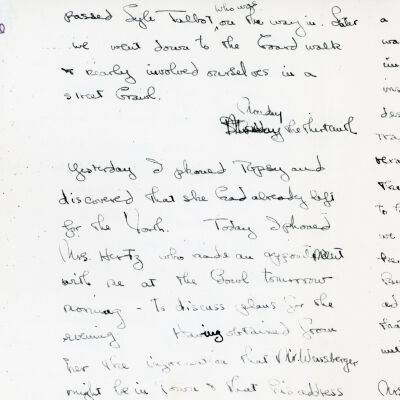 who was
passed Lyle Talbot, on the way in. Later
we went down to the board walk
& nearly involved ourselves in a
street brawl.
Monday
the thirteenth
Yesterday I phoned Topsy and
discovered that she had already left
for the North. Today I phoned
Mrs. Hertz who made an appointment
with me at the Bowl tomorrow
morning - to discuss plans for the
evening Having obtained from
her the information that Mr. Weissberger
might be in town & that his address